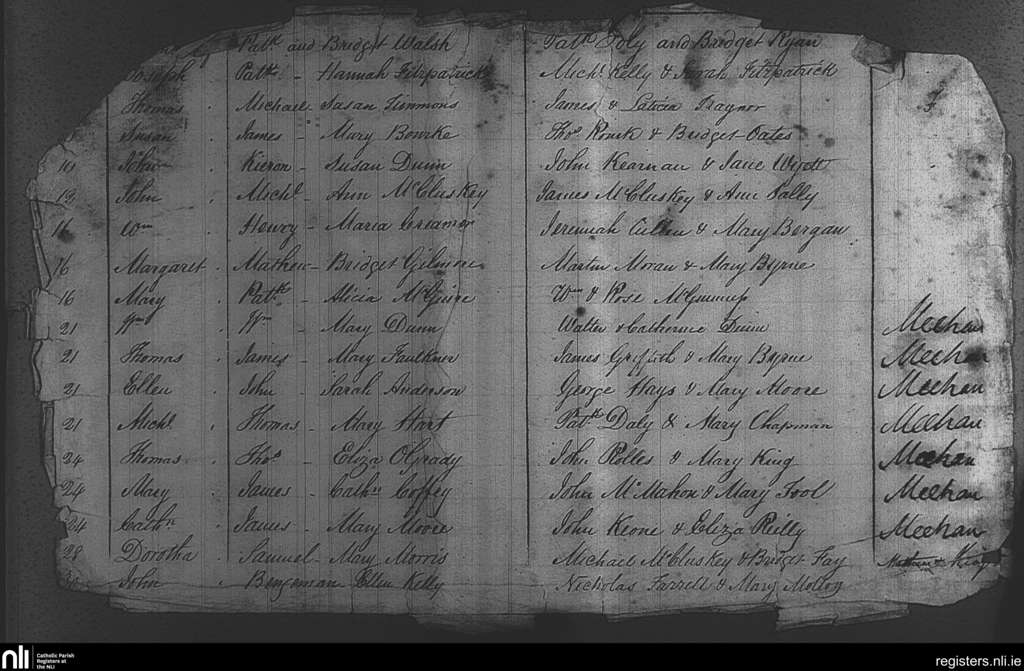 Patk and Bridget Walsh Patk Foly and Bridget Ryan
Joseph Patk - Hannah Fitzpatrick Michl Kelly & Sarah Fitzpatrick
Thomas Michael Susan Simmons James & Leticia Traynor
Susan James - Mary Bourke Thos & Bridget Oates
John Kieron - Susan Dunn John Kearnan & Jane
13 John Michl - Ann McCluskey James McCluskey & Ann Lally
16 Wm Henry - Maria Creamor Jeremiah Cullen & Mary Bergan
16 Margaret Mathew - Bridget Gilmore Martin Moran & Mary Byrne
16 Mary Patk - Alicia McGuire Wm & Rose
21 Wm Wm - Mary Dunn Walter & Catherine Dunn Meehan
21 Thomas James - Mary Faulkner James Griffith & Mary Byrne Meehan
21 Ellen John - Sarah Anderson George Hays & Mary Moore Meehan
21 Michl Thomas - Mary Hart Patk Daly & Mary Chapman Meehan
24 Thomas Thos - Eliza OGrady John Rolles & Mary King Meehan
24 Mary James - Cathn Coffey John McMahon & Mary Fool Meehan
24 Cathn James - Mary Moore John Keone & Eliza Reilly Meehan
28 Dorotha Samuel - Mary Morris Michael McCluskey & Bridget Fay
John Bengeman Ellen Kelly Nicholas Farrell & Mary Molloy
nli Catholic Parish
Registers at
the NLI
registers.nli.ie